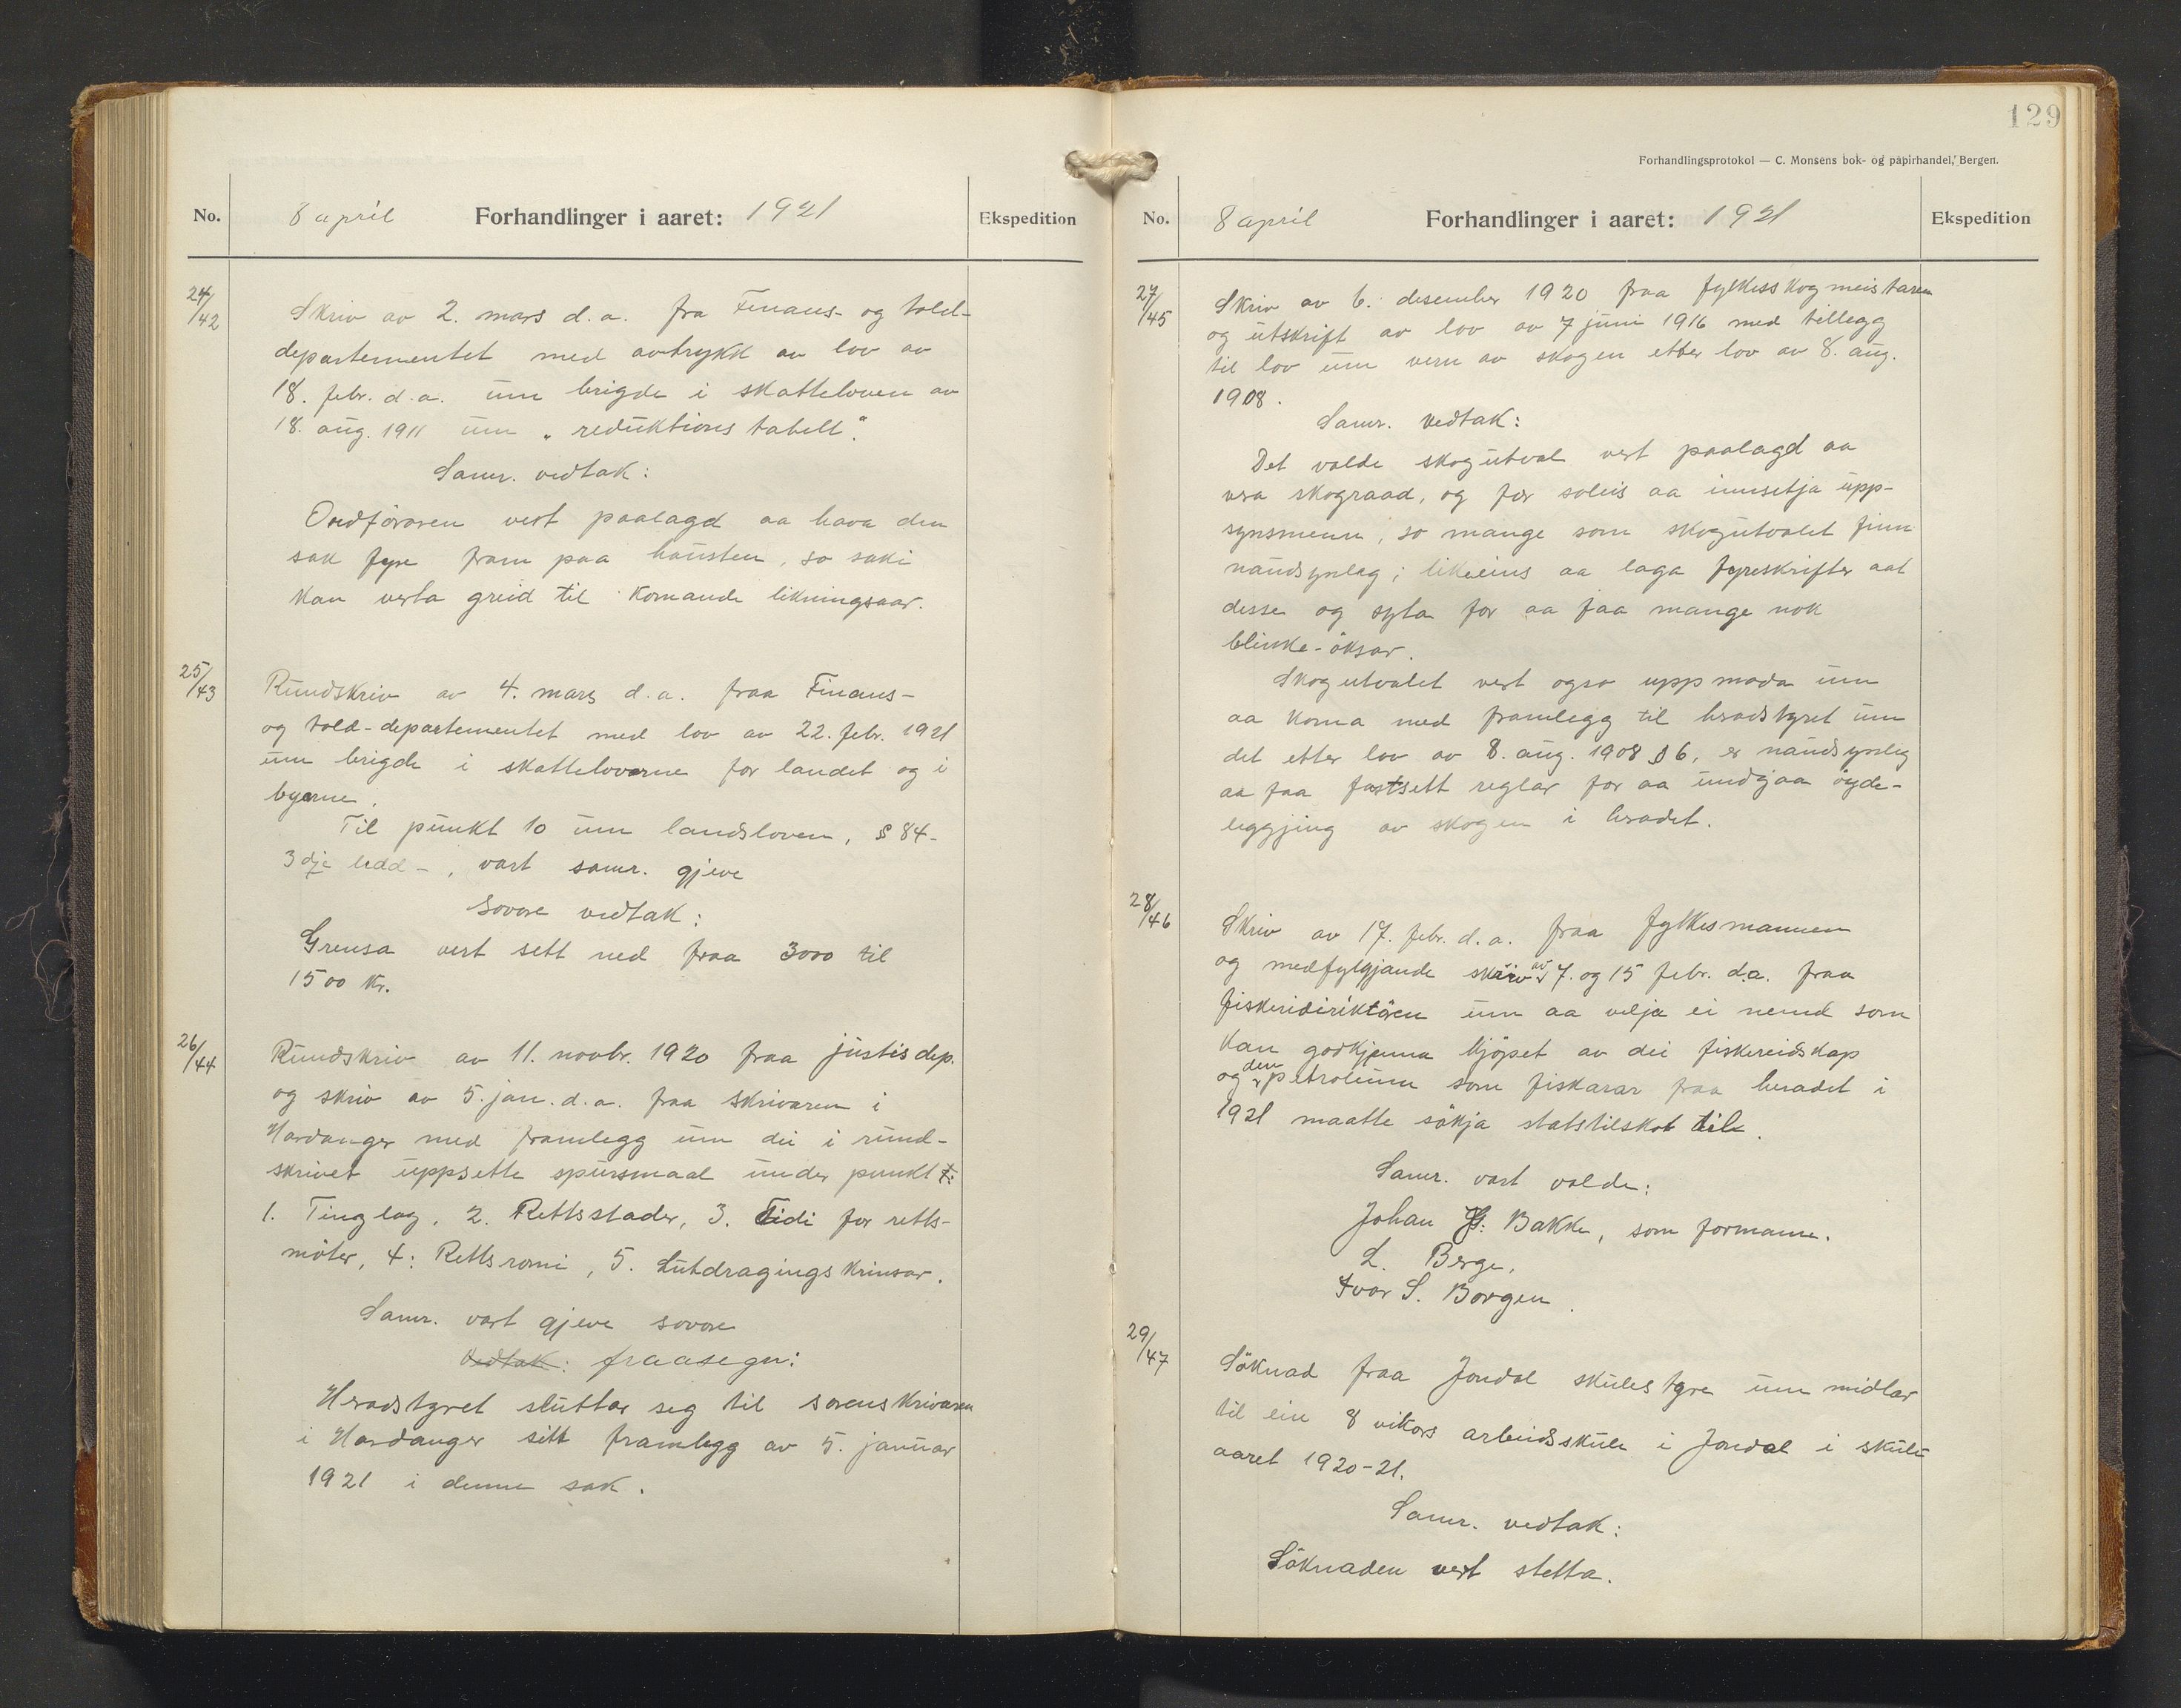 No. 8 april Forhandlinger i aaret: 1921 Ekspedition
24/42
Skriv av 2. mars d.a. fra Finans- og told-
departementet med avtrykk av lov av
18. febr. d.a. um brigde i skatteloven av
18. aug. 1911 um „reduktions tabell".
Samr. vedtak:
Ordföraren vert paalagd aa hava den
sak fyre fram paa hausten, so saki
kan verta greid til komande likningsaar.
25/43
Rundskriv av 4. mars d.a. fraa Finans-
og told-departementet med lov av 22. febr. 1921
um brigde i skattelovarne for landet og i
byarne.
Til punkt 10 um landsloven, § 84-
3dje ledd -, vart samr. gjeve
sovore vedtak:
Grensa vert sett ned fraa 3000 til
1500 kr.
26/44
Rundskriv av 11. novbr. 1920 fraa justisdep.
og skriv av 5. jan. d.a. fraa skrivaren i
Hardanger med framlegg um dei i rund-
skrivet uppsette spursmaal under punkt:
1. Tinglag, 2. Rettsstader, 3. Tidi for retts-
möter, 4: Rettsromi, 5. Lutdragings krinsar.
Samr. vart gjeve sovore
vedtak: fraasegn:
Heradstyret sluttar seg til sorenskrivaren
i Hardanger sitt framlegg av 5. januar
1921 i denne sak.
129
Forhandlingsprotokol — C. Monsens bok- og papirhandel, Bergen.
No. 8 april Forhandlinger i aaret: 1921 Ekspedition
27/45
Skriv av 6. desember 1920 fraa fylkesskogmeistaren
og utskrift av lov av 7 juni 1916 med tillegg
til lov um vern av skogen etter lov av 8. aug.
1908.
Samr. vedtak:
Det valde skogutval vert paalagd aa
vera skograad, og fær soleis aa innsetja upp-
synsmenn, so mange som skogutvalet finn
naudsynleg; likeeins aa laga fyreskrifter aat
desse og syta for aa faa mange nok
blinke-öksar.
Skogutvalet vert ogso uppmoda um
aa koma med framlegg til heradstyret um
det etter lov av 8. aug. 1908 § 6, er naudsynleg
aa faa fastsett reglar for aa undgaa öyde-
leggjing av skogen i heradet.
28/46
Skriv av 17. febr. d.a. fraa fylkesmannen
og medfylgjande skriv av 7. og 15 febr. d.a. fraa
fiskeridirektören um aa velja ei nemd som
kan godkjenna kjöpet av dei fiskereidskap
og den petroleum som fiskarar fraa heradet i
1921 maatte sökja statstilskot til.
Samr. vart valde:
Johan J. Bakke, som formann.
L. Berge,
Ivar S. Borgen.
29/47
Söknad fraa Jondal skulestyre um midlar
til ein 8 vikors arbeidsskule i Jondal i skule
aaret 1920-21.
Samr. vedtak:
Söknaden vert stetta.